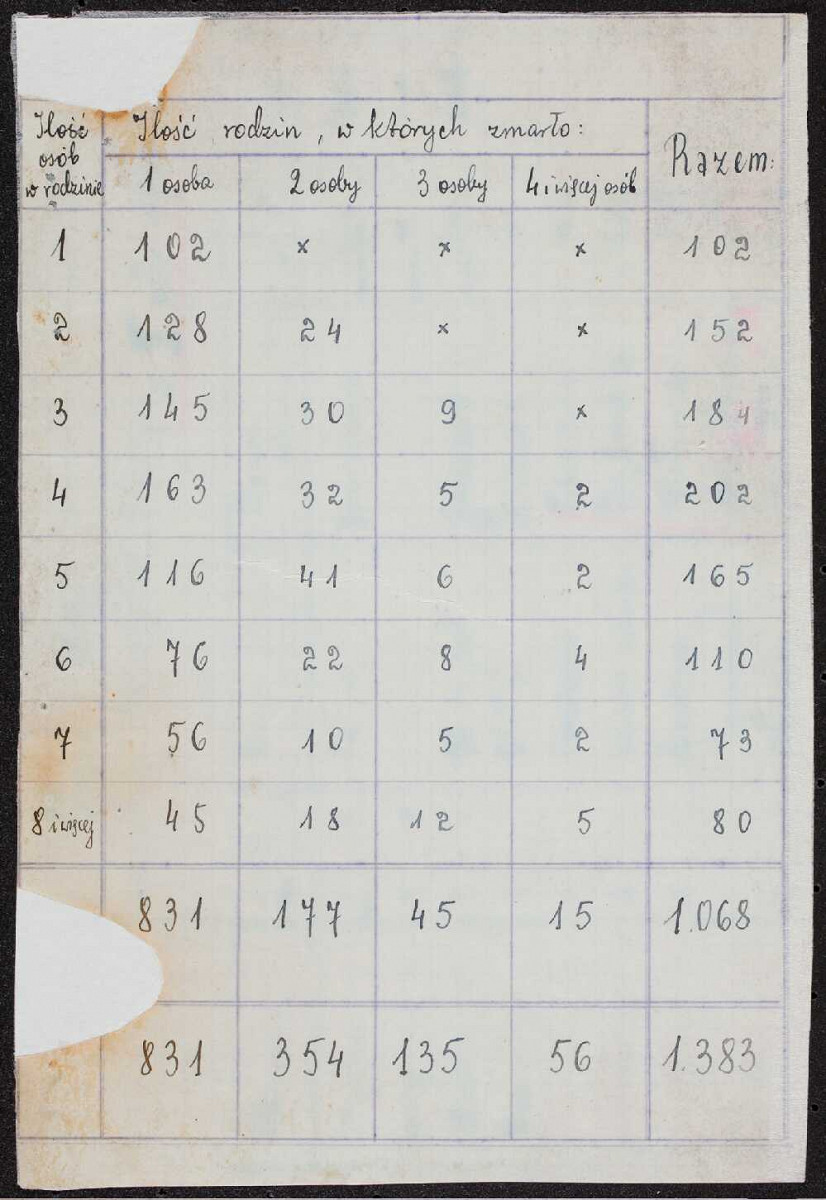 Ilość osób w rodzinie
Ilość rodzin, w których zmarło:
Razem:
1 osoba 2 osoby 3 osoby 4 i więcej osób
1 102 x x x 102
2 128 24 x x 152
3 145 30 9 x 184
4 163 32 5 2 202
5 116 41 6 2 165
6 76 22 8 4 110
7 56 10 5 2 73
8 i więcej 45 18 12 5 80
831 177 45 15 1.068
831 354 135 56 1.383